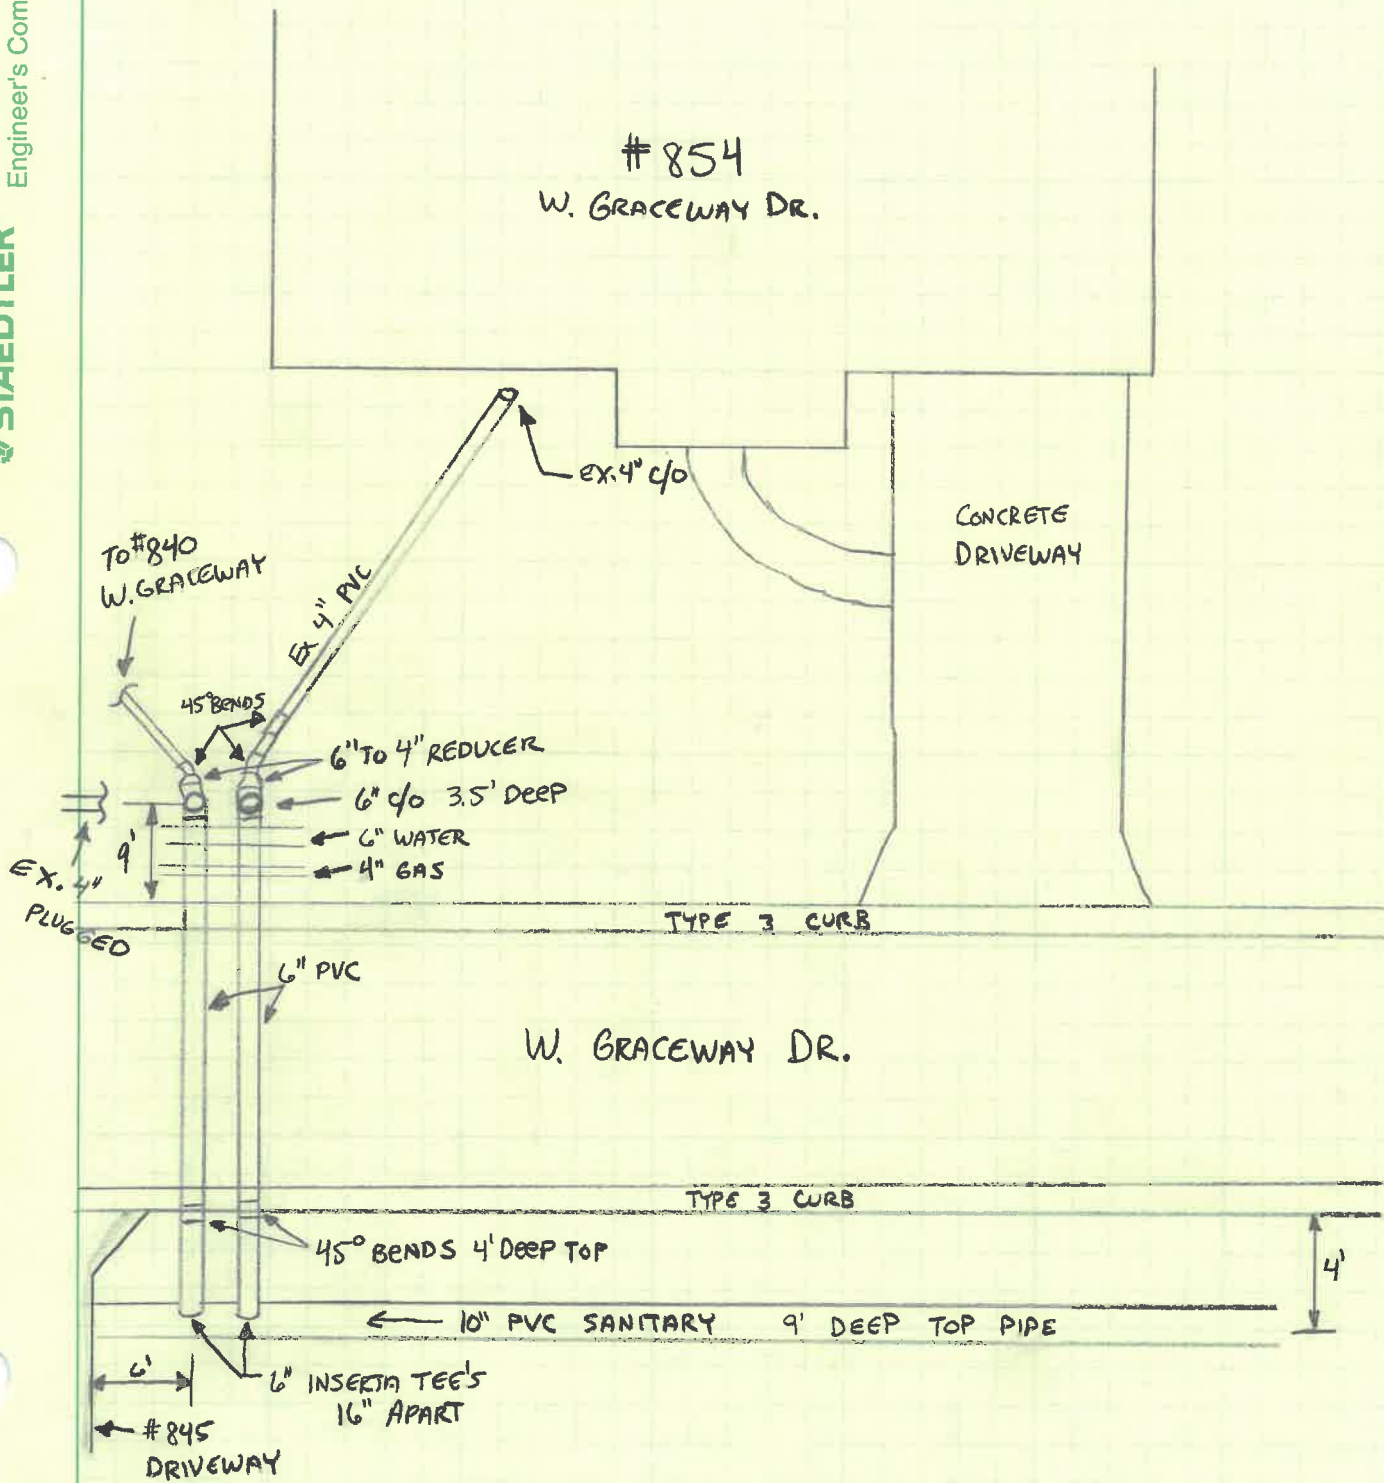 Engineer's Com
STAEDTLER
#854
W. GRACEWAY DR.
EX. 4" C/O
CONCRETE
DRIVEWAY
TO #840
W. GRACEWAY
EX 4" PVC
45° BENDS
6" TO 4" REDUCER
6" C/O 3.5' DEEP
6" WATER
4" GAS
9'
EX. 4"
PLUGGED
TYPE 3 CURB
6" PVC
W. GRACEWAY DR.
TYPE 3 CURB
45° BENDS 4' DEEP TOP
4'
10" PVC SANITARY 9' DEEP TOP PIPE
6'
6" INSERTA TEE'S
16" APART
#845
DRIVEWAY